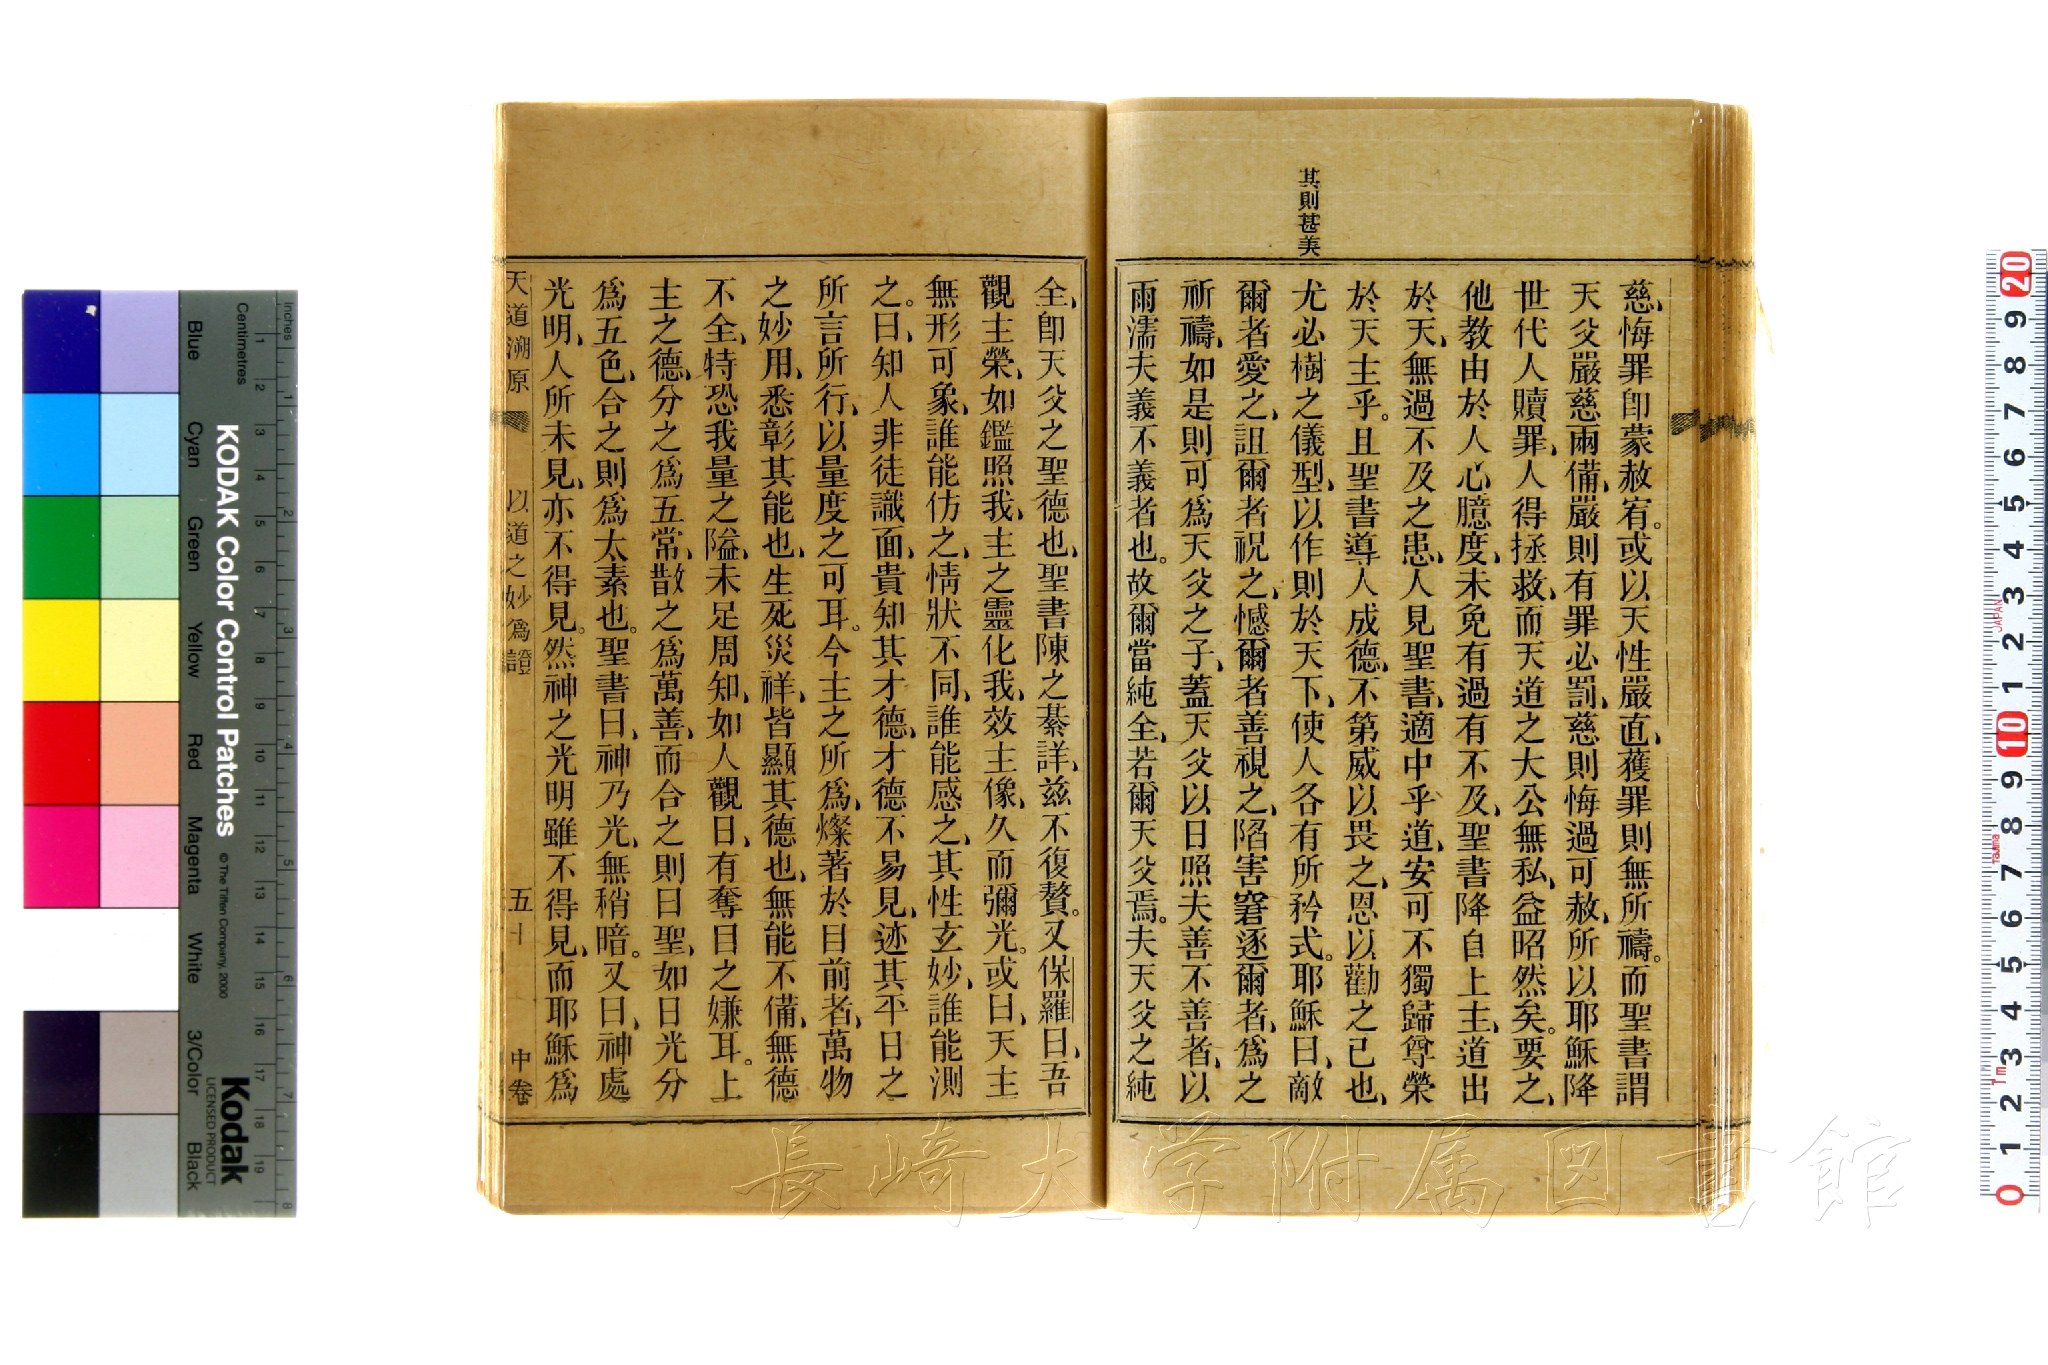 其則甚美
慈、悔罪卽蒙赦宥。或以天性嚴直、獲罪則無所禱。而聖書謂
天父嚴慈兩備、嚴則有罪必罰、慈則悔過可赦、所以耶穌降
世代人贖罪、人得拯救、而天道之大公無私、益昭然矣。要之、
他教由於人心臆度、未免有過有不及、聖書降自上主、道出
於天、無過不及之患、人見聖書、適中乎道、安可不獨歸尊榮
於天主乎。且聖書導人成德、不第威以畏之、恩以勸之已也、
尤必樹之儀型、以作則於天下、使人各有所矜式。耶穌曰、敵
爾者愛之、詛爾者祝之、憾爾者善視之、陷害窘逐爾者、爲之
祈禱、如是則可爲天父之子、蓋天父以日照夫善不善者、以
雨濡夫義不義者也。故爾當純全、若爾天父焉。夫天父之純
全、卽天父之聖德也、聖書陳之綦詳、茲不復贅。又保羅曰、吾
觀主榮、如鑑照我、主之靈化我、效主像、久而彌光。或曰、天主
無形可象、誰能仿之、情狀不同、誰能感之、其性玄妙、誰能測
之。曰、知人非徒識面、貴知其才德、才德不易見、迹其平日之
所言所行、以量度之可耳。今主之所爲、燦著於目前者、萬物
之妙用、悉彰其能也、生死災祥、皆顯其德也、無能不備、無德
不全、特恐我量之隘、未足周知、如人觀日、有奪目之嫌耳。上
主之德、分之爲五常、散之爲萬善、而合之則曰聖、如日光分
爲五色、合之則爲太素也。聖書曰、神乃光、無稍暗。又曰、神處
光明、人所未見、亦不得見。然神之光明雖不得見、而耶穌爲
天道溯原 以道之妙爲證 五十 中卷
長崎大学附属図書館
KODAK Color Control Patches
© The Tiffen Company, 2000
Kodak
LICENSED PRODUCT
Inches
Centimetres
Blue
Cyan
Green
Yellow
Red
Magenta
White
3/Color
Black
1 2 3 4 5 6 7 8 9 10 11 12 13 14 15 16 17 18 19
1 2 3 4 5 6 7 8
20 9 8 7 6 5 4 3 2 1 10 9 8 7 6 5 4 3 2 1 0
JAPAN
Tajima
1m